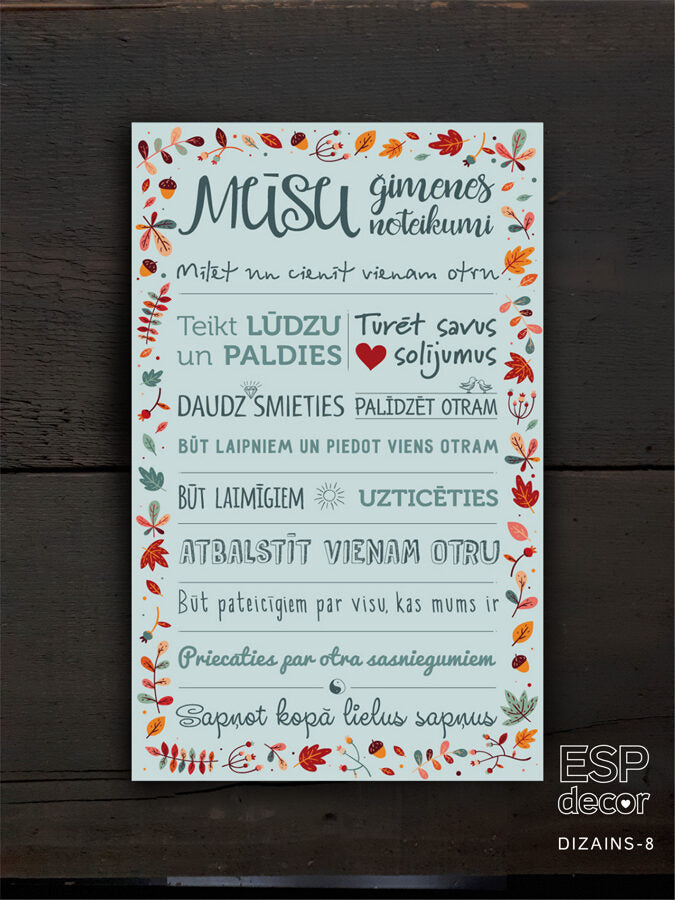 Mūsu ģimenes noteikumi
Mīlēt un cienīt vienam otru
Teikt LŪDZU
un PALDIES
Turēt savus
solījumus
DAUDZ SMIETIES
PALĪDZĒT OTRAM
BŪT LAIPNIEM UN PIEDOT VIENS OTRAM
BŪT LAIMĪGIEM
UZTICĒTIES
ATBALSTĪT VIENAM OTRU
Būt pateicīgiem par visu, kas mums ir
Priecāties par otra sasniegumiem
Sapņot kopā lielus sapņus
ESP
decor
DIZAINS-8